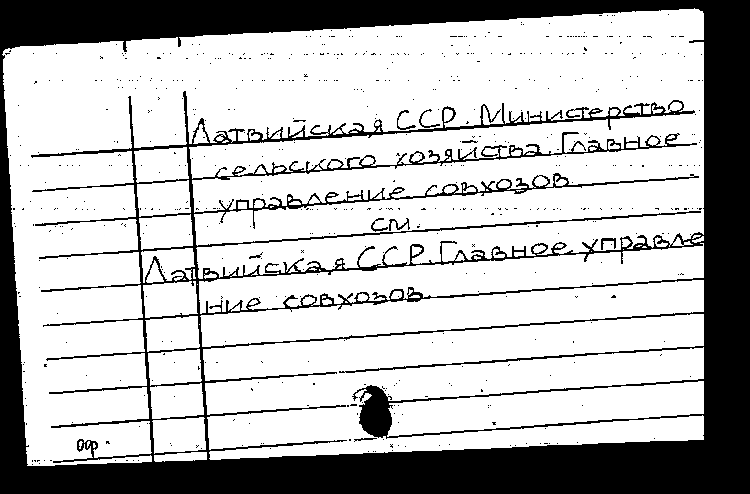 Латвийская ССР. Министерство
сельского хозяйства. Главное
управление совхозов
см.
Латвийская ССР. Главное управле
ние совхозов.